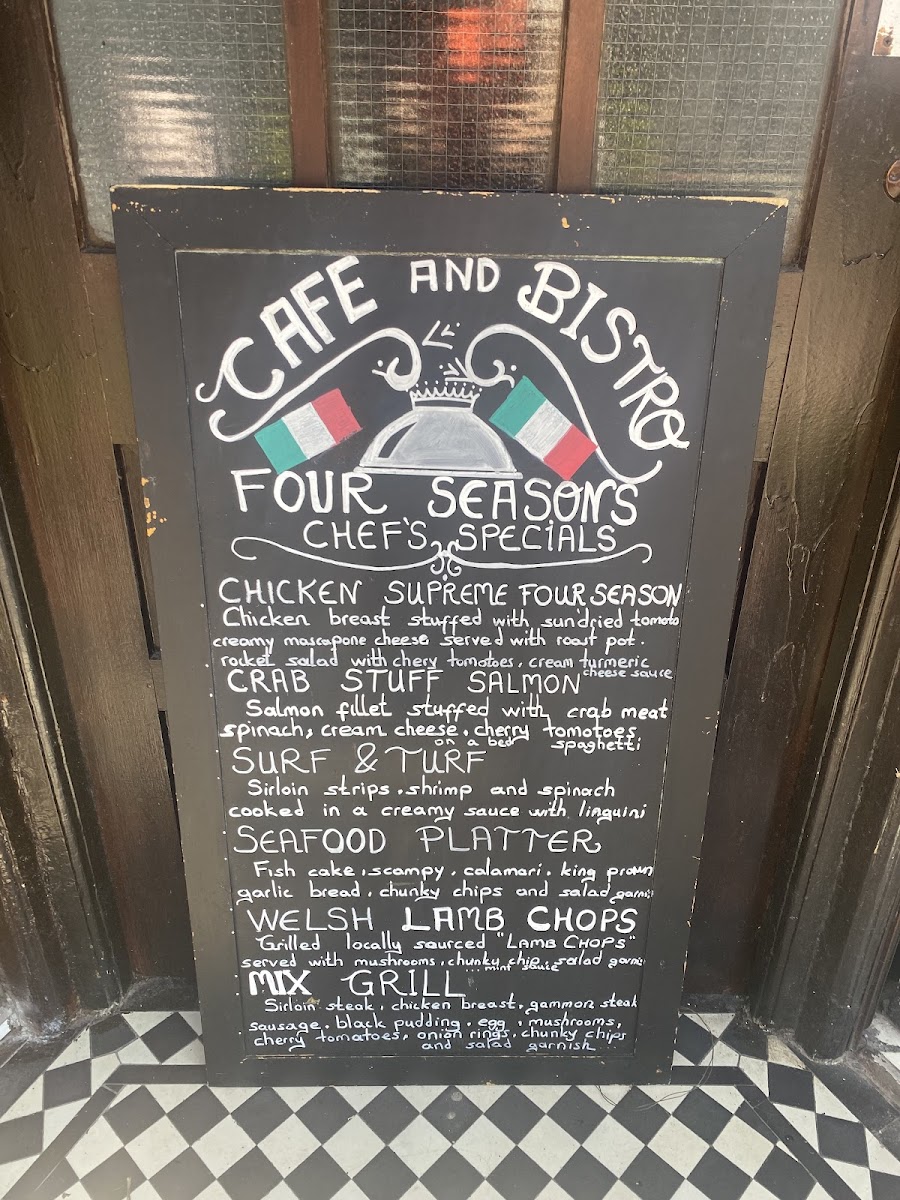 CAFE AND BISTRO
FOUR SEASONS
CHEF'S SPECIALS
CHICKEN SUPREME FOUR SEASON
Chicken breast stuffed with sundried tomato
creamy mascapone cheese served with roast pot.
rocket salad with chery tomotoes, cream turmeric
cheese sauce
CRAB STUFF SALMON
Salmon fillet stuffed with crab meat
spinach, cream cheese, cherry tomotoes
on a bed spaghetti
SURF & TURF
Sirloin strips, shrimp and spinach
cooked in a creamy sauce with linguini
SEAFOOD PLATTER
Fish cake, scampy, calamari, king prawn
garlic bread, chunky chips and salad garnis
WELSH LAMB CHOPS
Grilled locally sourced "LAMB CHOPS"
served with mushrooms, chunky chip, salad garnis
... mint sauce
MIX GRILL
Sirloin steak, chicken breast, gammon steak
sausage, black pudding, egg, mushrooms,
cherry tomatoes, onion rings, chunky chips
and salad garnish